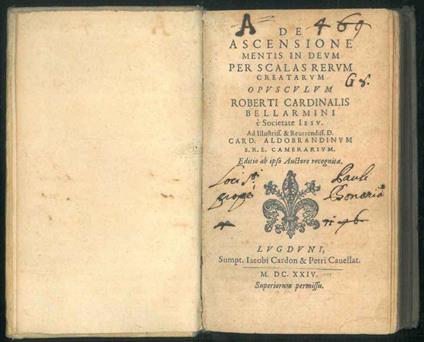 A 469
DE
ASCENSIONE
MENTIS IN DEVM
PER SCALAS RERVM
CREATARVM
OPVSCVLVM
ROBERTI CARDINALIS
BELLARMINI
è Societate IESV.
Ad Illustriss. & Reuerendiss. D.
CARD. ALDOBRANDINVM
S.R.E. CAMERARIVM.
Editio ab ipso Auctore recognita.
Pauli
LVGDVNI,
Sumpt. Iacobi Cardon & Petri Cauellat.
M. DC. XXIV.
Superiorum permissu.